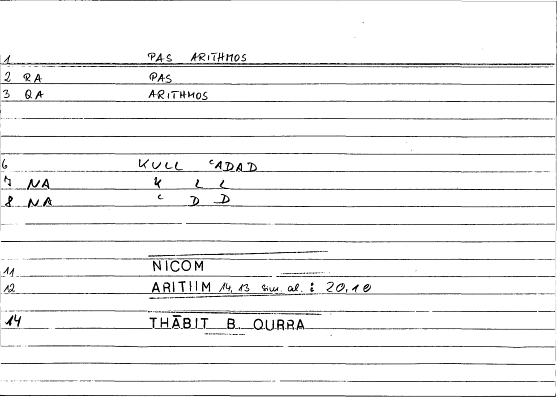 1 PAS ARITHMOS
2 RA PAS
3 QA ARITHMOS
6 KULL ʿADAD
7 NA K L L
8 NA ʿ D D
11 NICOM
12 ARITIIM 14,13 sim. al. : 20,10
14 THĀBIT B. QURRA